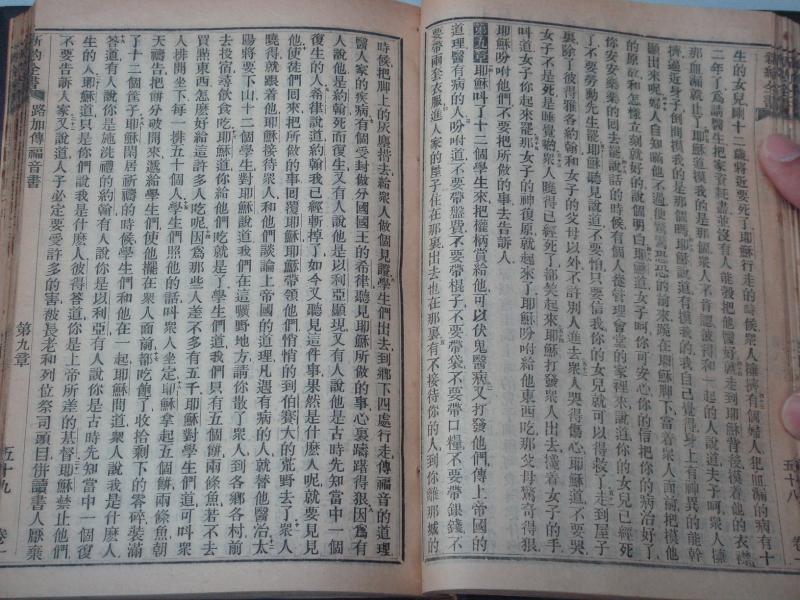 生的女兒剛十二歲將近要死了耶穌行走的時候衆人擁擠有個婦人犯血漏的病有十
二年了爲請醫生把家資耗盡並沒有人能彀把他醫好就走到耶穌背後摸着他的衣襟
那血漏就止了耶穌道摸我的是那個衆人不肯認彼得和一起的人說道夫子衆人擁
擠逼近身子倒問摸我的是那個嗎耶穌說道有摸我的我自己覺得身上有神異的能幹
顯出來呢婦人自知瞞他不過便驚驚恐恐的前來跪在耶穌脚下當着衆人面前把摸他
的原故和怎樣立刻就好的說個明白耶穌道女子呵你可安心你的信把你的病治好了
你安安樂樂的回去罷說話的時候有個人從管理會堂的家裡來說道你的女兒已經死
了不要勞動先生罷耶穌聽見說道不要怕只要信我你的女兒就可以得救了走到屋子
裏除了彼得雅各約翰和女子的父母以外不許別人進去衆人哭得傷心耶穌道不要哭
女子不是死是睡覺喲衆人曉得已經死了都笑起來耶穌打發衆人出去攙着女子的手
叫道女子起來罷那女子的神復原就起來了耶穌吩咐給他東西吃那父母驚奇得狠
耶穌吩咐他們不要把所做的事去告訴人
第九章耶穌叫了十二個學生來把權柄賞給他可以伏鬼醫病又打發他們傳上帝國的
道理醫有病的人吩咐道不要帶盤費不要帶棍子不要帶袋不要帶口糧不要帶銀錢不
要帶兩套衣服進人家的屋子住在那裏出去也在那裏有不接待你的人到你離那城的
五十八
時候把脚上的灰塵撘去給衆人做個見證學生們出去到鄉下四處行走傳福音的道理
醫人家的疾病有個受封做分國國王的希律聽見耶穌所做的事心裏躊躇得狠因爲有
人說他是約翰死而復生又有人說他是以利亞顯現又有人說他是古時先知當中一個
復生的人希律說道約翰我已經斬掉了如今又聽見這件事果然是什麽人呢就要見見
他使徒們回來把所做的事回覆耶穌耶穌帶領他們悄悄的到伯賽大的荒野去了衆人
曉得就跟着他耶穌接待衆人和他們談論上帝國的道理凡遇有病的人就替他醫治太
陽將要下山十二個學生對耶穌說道我們在這曠野地方請你散了衆人到各鄉各村前
去投宿尋飲食吃耶穌道你給他們吃就是了學生們道我們只有五個餅兩條魚若不去
買點東西怎麽好給這許多人吃呢因爲那些人差不多有五千耶穌對學生們道可叫衆
人排開坐下每一排五十個人學生們照他的話叫衆人坐定耶穌拿起五個餅兩條魚朝
天禱告把餅分破開來遞給學生們使他擺在衆人面前都吃飽了收拾剩下的零碎裝滿
了十二個筐子耶穌閒居祈禱的時候學生們和他在一起耶穌問道衆人說我是什麽人
答道有人說你是施洗禮的約翰有人說你是以利亞有人說你是古時先知當中一個復
生的人耶穌道只是你們說我是什麽人彼得答道你是上帝所差的基督耶穌禁止他們
不要告訴人家又說道人子必定要受許多的害被長老和列位祭司頭目併讀書人厭棄
新約全書
路加傳福音書
第九章
五十九